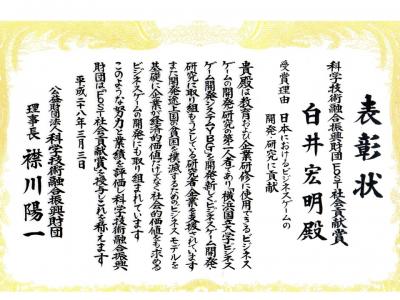 表彰状
科学技術融合振興財団FOST社会貢献賞
白井宏明殿
受賞理由 日本におけるビジネスゲームの
開発・研究に貢献
貴殿は教育および企業研修に使用できるビジネス
ゲームの開発・研究の第一人者であり横浜国立大学ビジネス
ゲーム開発システムYBGを開発・新しくビジネスゲーム開発
研究に取り組もうとしている研究者・企業を支援されています
また開発途上国の貧困を撲滅するためのビジネスモデルを
基礎に企業の経済的価値だけでなく社会的価値をも求める
ビジネスゲームの開発にも取り組まれています
このような努力と業績を評価し科学技術融合振興
財団はFOST社会貢献賞を授与しこれを称えます
平成二十八年三月三日
公益財団法人科学技術融合振興財団
理事長 襟川陽一